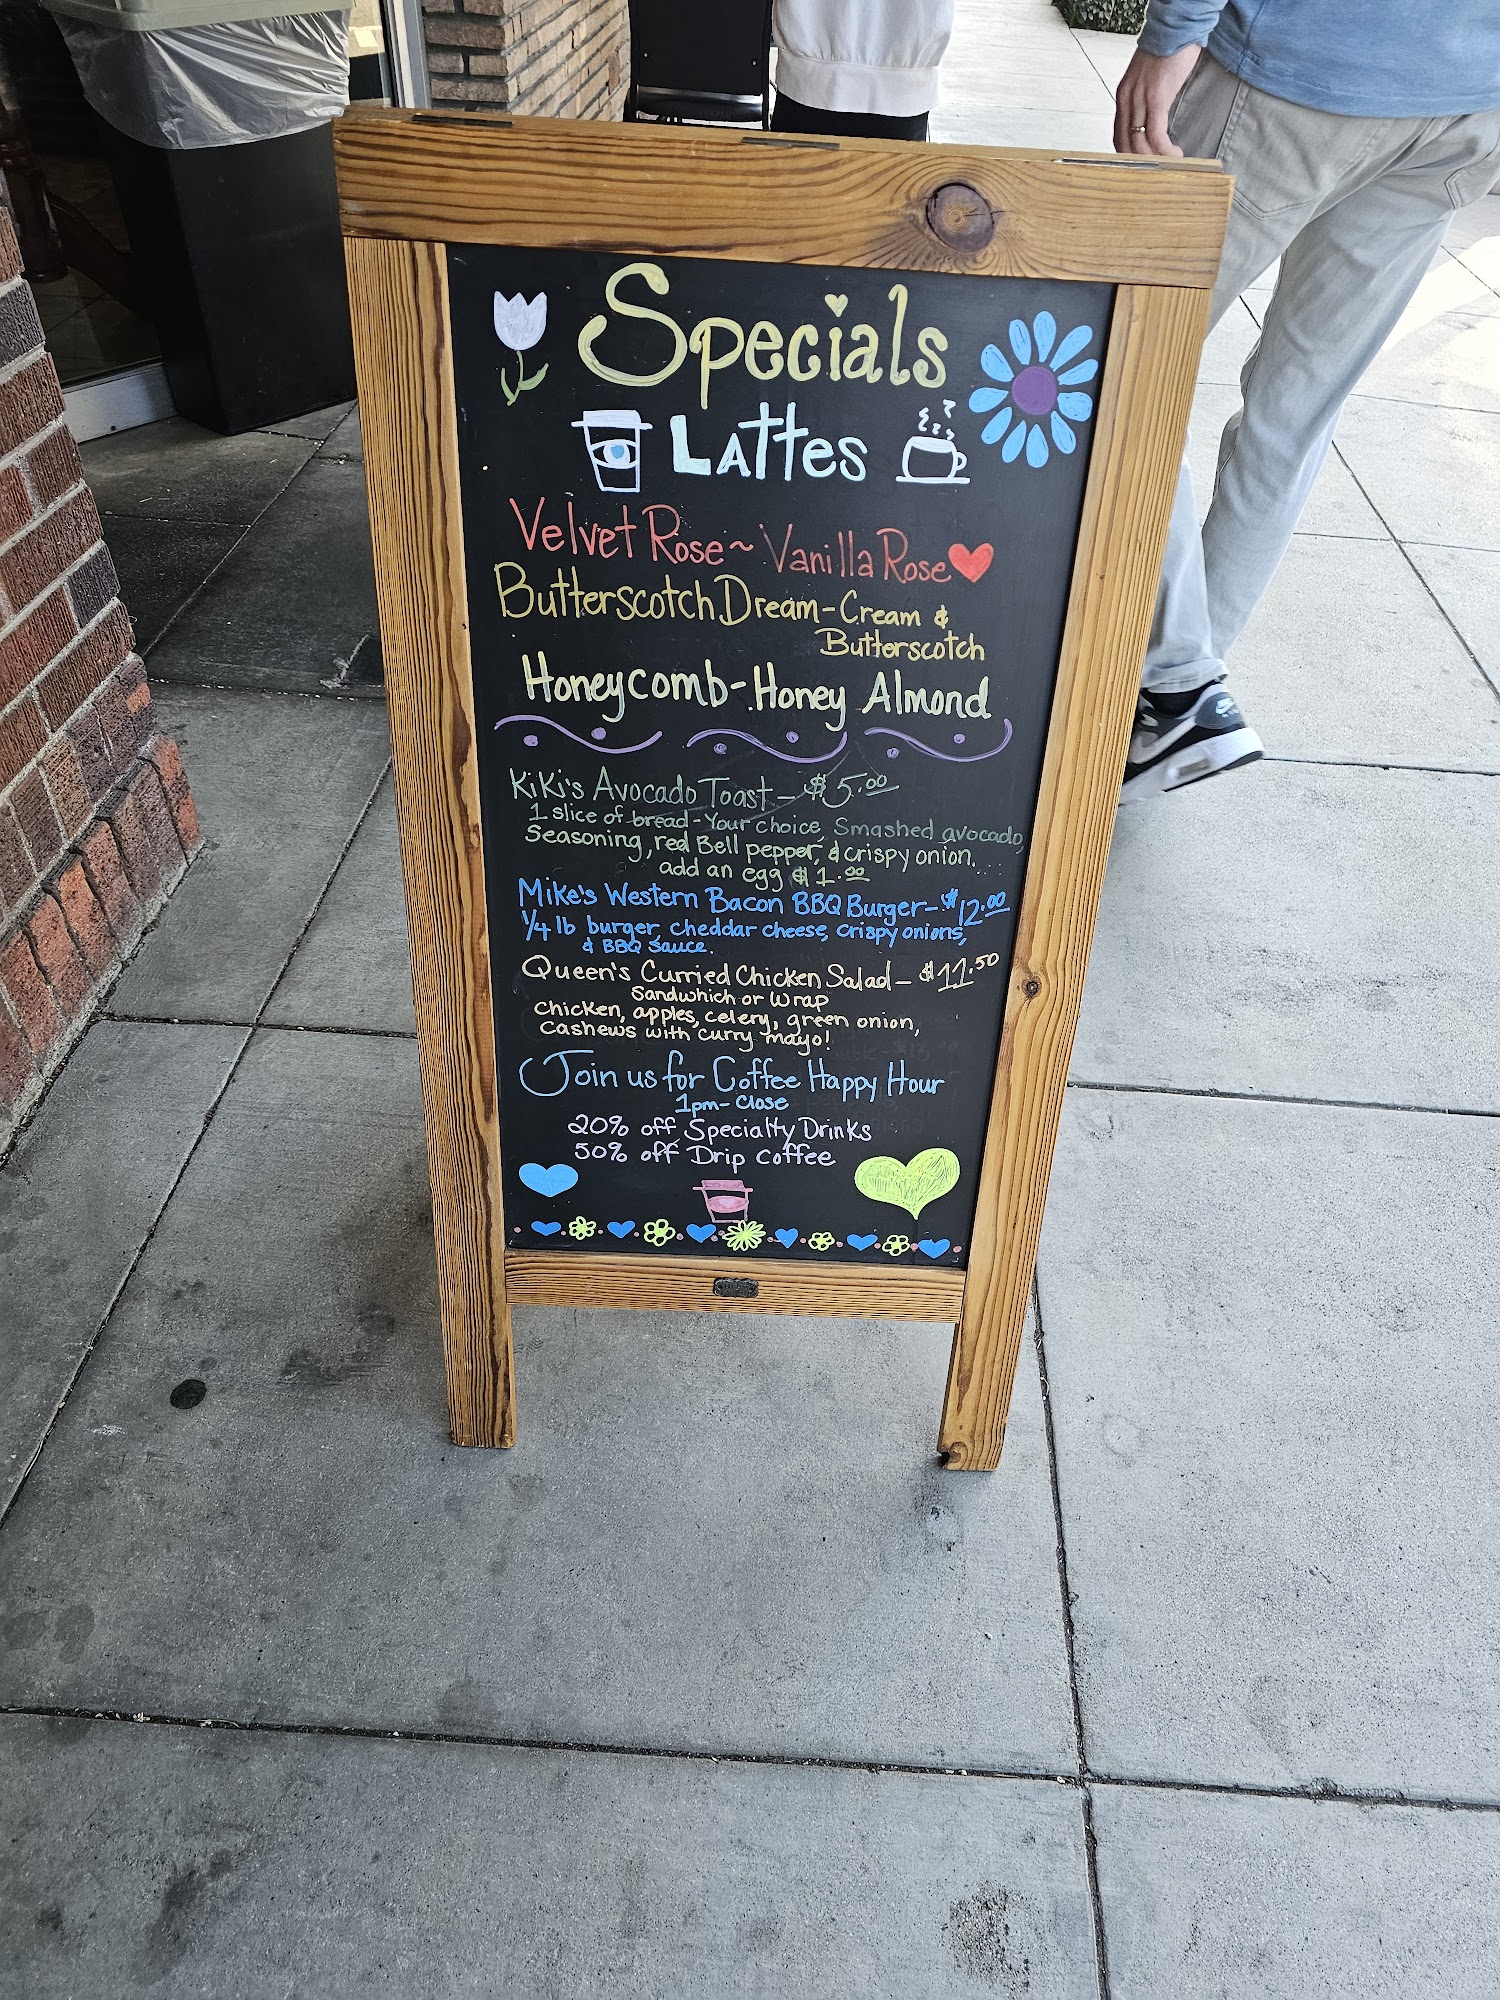 Specials
Lattes
Velvet Rose~ Vanilla Rose
Butterscotch Dream-Cream &
Butterscotch
Honeycomb-Honey Almond
KiKi's Avocado Toast - $5.00
1 slice of bread-Your choice, Smashed avocado,
Seasoning, red Bell pepper, & crispy onion....
add an egg $1.00
Mike's Western Bacon BBQ Burger-$12.00
1/4 lb burger, cheddar cheese, crispy onions,
& BBQ Sauce.
Queen's Curried Chicken Salad-$11.50
Sandwhich or Wrap
Chicken, apples, celery, green onion,
Cashews with curry mayo!
Join us for Coffee Happy Hour
1pm-Close
20% off Specialty Drinks
50% off Drip Coffee